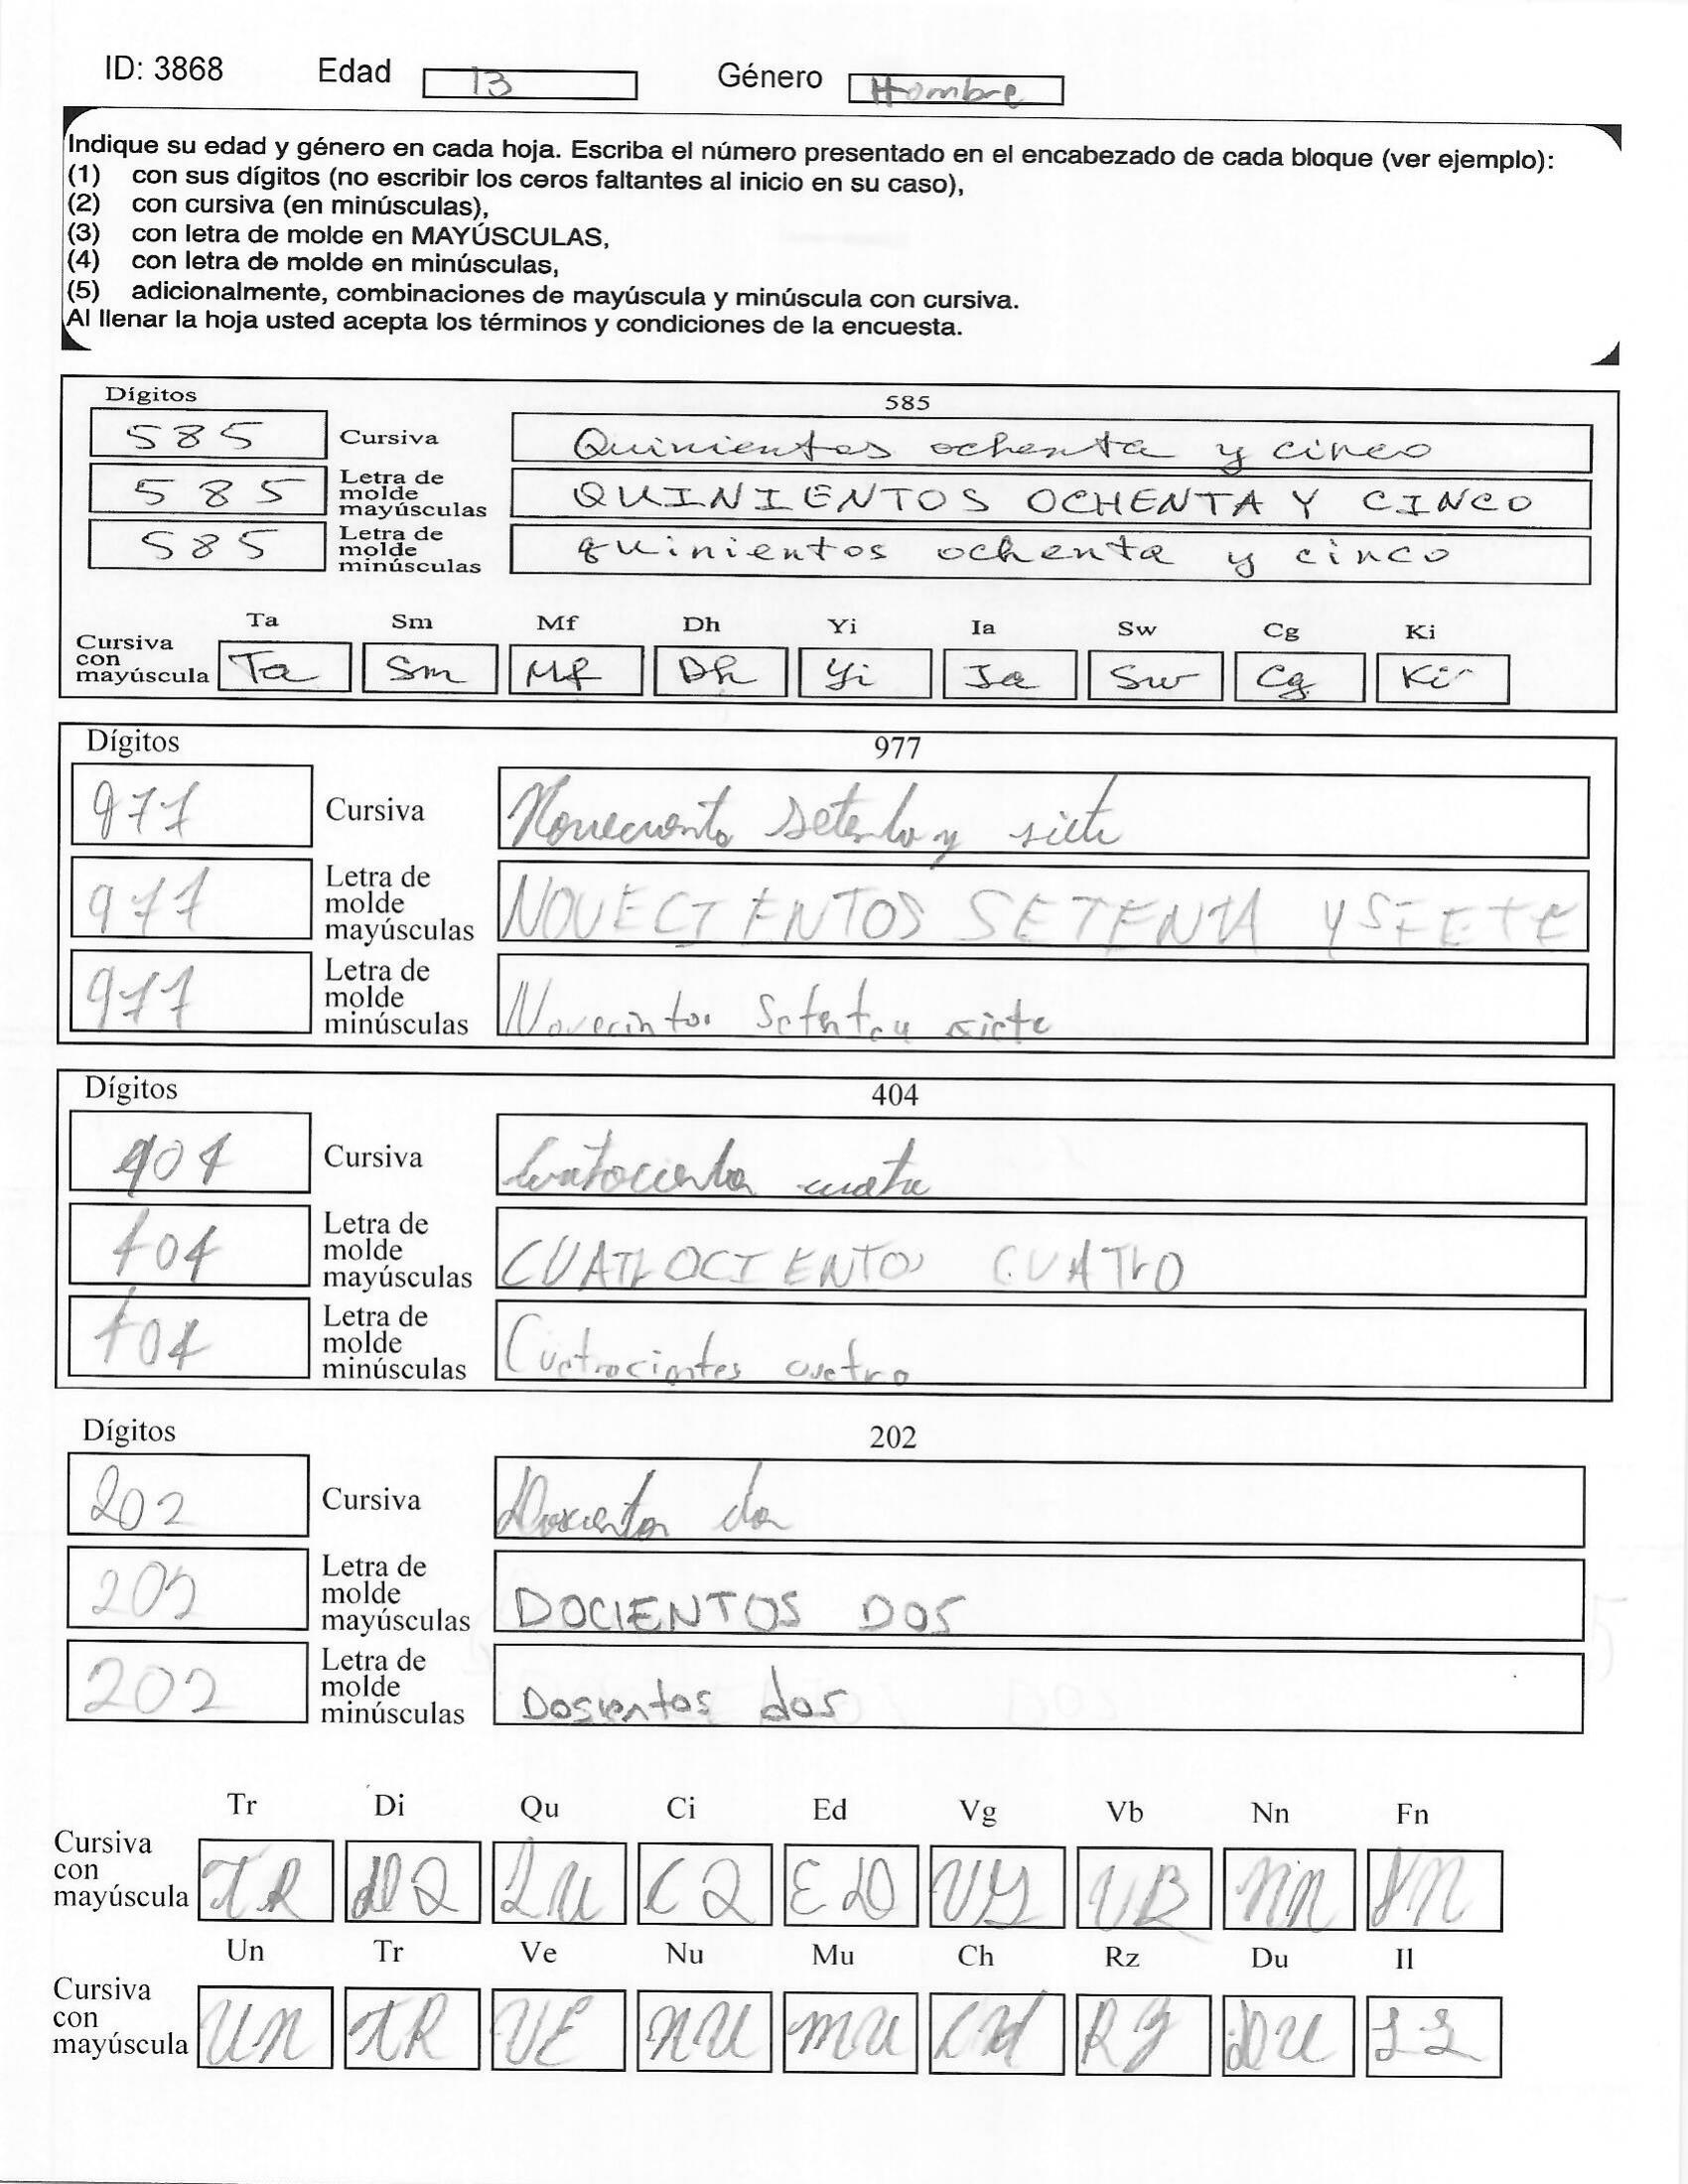 ID: 3868 Edad 13 Género Hombre
Indique su edad y género en cada hoja. Escriba el número presentado en el encabezado de cada bloque (ver ejemplo):
(1) con sus dígitos (no escribir los ceros faltantes al inicio en su caso),
(2) con cursiva (en minúsculas),
(3) con letra de molde en MAYÚSCULAS,
(4) con letra de molde en minúsculas,
(5) adicionalmente, combinaciones de mayúscula y minúscula con cursiva.
Al llenar la hoja usted acepta los términos y condiciones de la encuesta.
Dígitos 585
585 Cursiva Quinientos ochenta y cinco
585 Letra de molde mayúsculas QUINIENTOS OCHENTA Y CINCO
585 Letra de molde minúsculas quinientos ochenta y cinco
Ta Sm Mf Dh Yi Ia Sw Cg Ki
Cursiva con mayúscula Ta Sm Mf Dh Yi Ia Sw Cg Ki
Dígitos 977
977 Cursiva setenta y siete
977 Letra de molde mayúsculas NOVECIENTOS SETENTA Y SIETE
977 Letra de molde minúsculas Novecintos siete
Dígitos 404
404 Cursiva
404 Letra de molde mayúsculas CUATROCIENTOS CUATRO
404 Letra de molde minúsculas cuatro
Dígitos 202
202 Cursiva
202 Letra de molde mayúsculas DOCIENTOS DOS
202 Letra de molde minúsculas Dosientos dos
Tr Di Qu Ci Ed Vg Vb Nn Fn
Cursiva con mayúscula TR DI QU CI ED VG VB NN FN
Un Tr Ve Nu Mu Ch Rz Du Il
Cursiva con mayúscula UN TR VE NU MU CH RZ DU IL